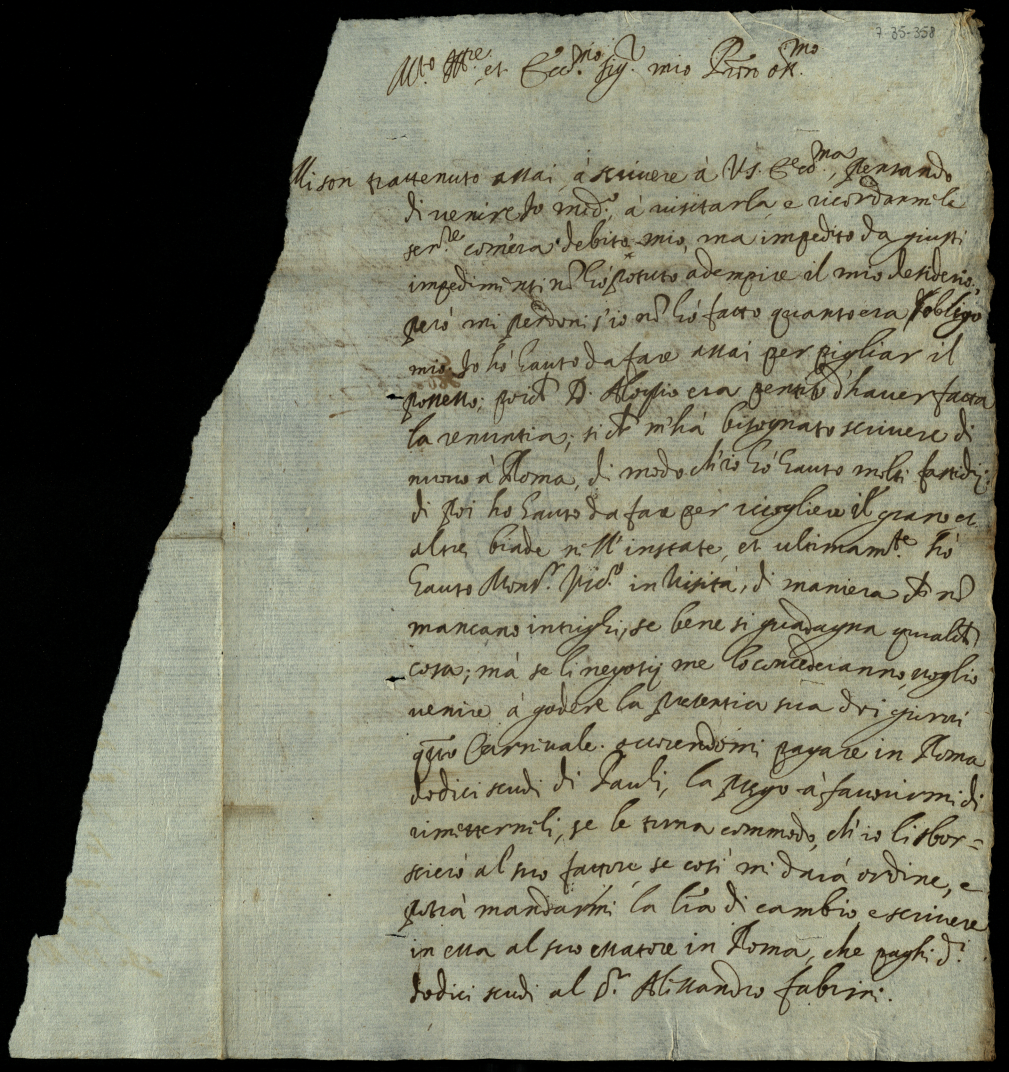 7-35-358
M.to Ill.re et Ecc.mo Sig.r mio P.ron oss.mo
Mi son trattenuto assai à scrivere à V.S. Ecc.ma, pensando
di venire Io med.o à visitarla, e ricordarmele
ser.re com'era debito mio, ma impedito da giusti
impedimenti nõ hò potuto adempire il mio desiderio;
però mi perdoni s'io nõ hò fatto quanto era l'obligo
mio. Io hò hauto da fare assai per pigliar il
possesso; poiche D. Aloysio era pentito d'haver fatta
la renuntia; si che m'hà bisognato scrivere di
nuovo à Roma, di modo ch'io hò hauto molti fastidij:
di poi ho hauto da fare per ricogliere il grano et
altre biade nell'instate, et ultimam.te hò
hauto Mons.r Vic.o in Visita, di maniera che nõ
mancano intrighi, se bene si guadagna qualche
cosa; mà se li negotij me lo concederanno, voglio
venire à godere la presentia sua doi giorni
q.sto Carnivale. occorrendomi pagare in Roma
dodici scudi di Pauli, la prego à favorirmi di
rimetterneli, se le torna commodo, ch'io li sbor=
scierò al suo fattore se così mi darà ordine, e
potrà mandarmi la lr̃a di cambio, e scrivere
in essa al suo essattore in Roma, che paghi d.i
dodici scudi al S.r Alissandro Fabrini.